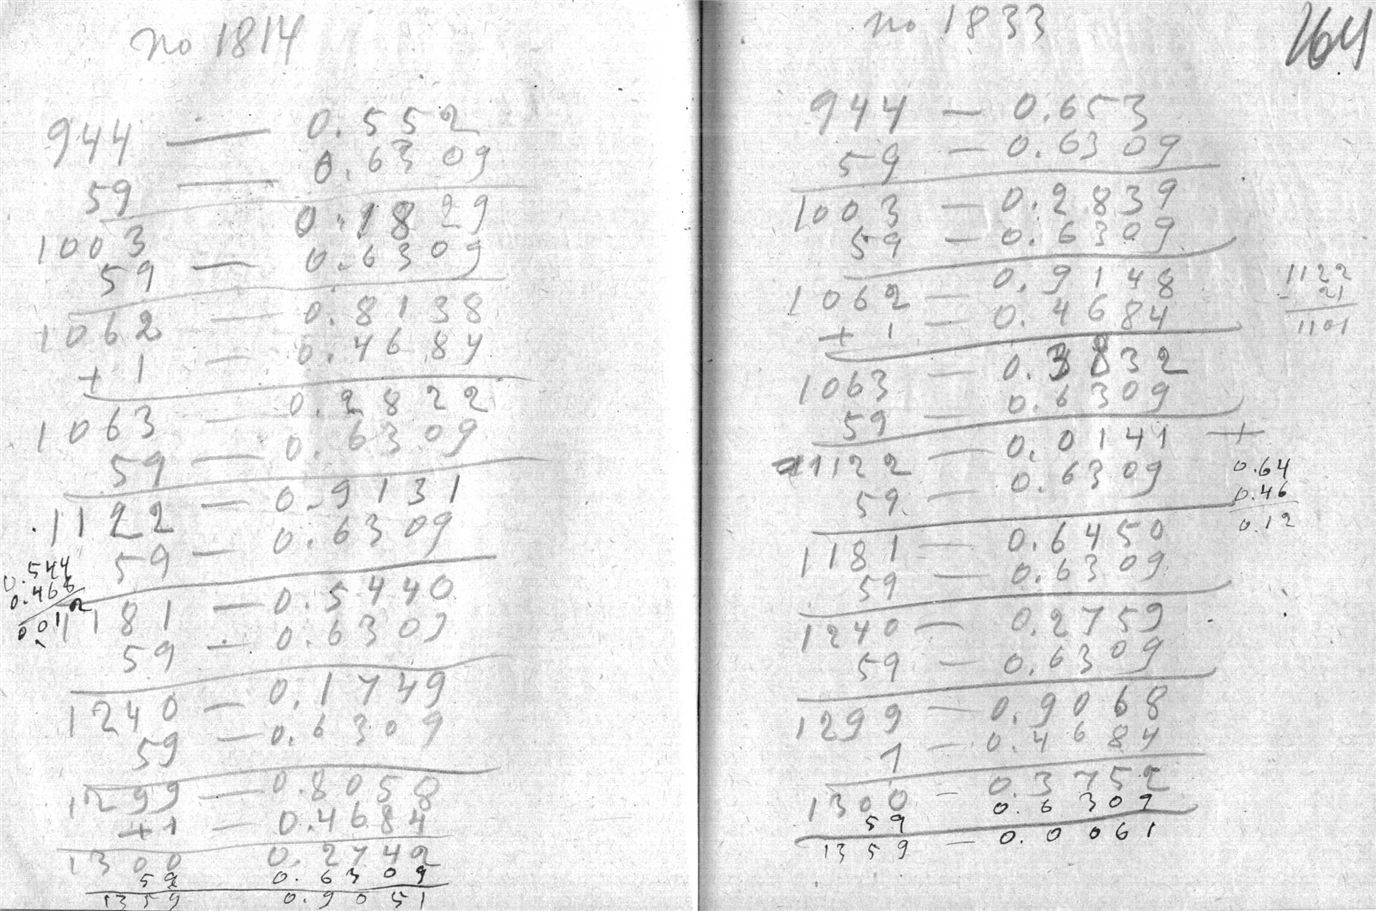 no 1814
944 — 0.552
59 — 0.6309
1003 0.1829
59 — 0.6309
1062 — 0.8138
+ 1 — 0.4684
1063 — 0.2822
59 — 0.6309
1122 — 0.9131
59 — 0.6309
1181 — 0.5440
59 — 0.6309
1240 — 0.1749
59 — 0.6309
1299 — 0.8058
+1 — 0.4684
1300 0.2742
59 0.6309
1359 0.9051
0.544
0.468
0.012
no 1833
264
944 — 0.653
59 — 0.6309
1003 — 0.2839
59 — 0.6309
1062 — 0.9148
+ 1 — 0.4684
1063 — 0.3832
59 — 0.6309
1122 — 0.0141
59 — 0.6309
1181 — 0.6450
59 — 0.6309
1240 — 0.2759
59 — 0.6309
1299 — 0.9068
1 — 0.4684
1300 - 0.3752
59 0.6309
1359 — 0.0061
1122
- 21
1101
+
0.64
0.46
0.12